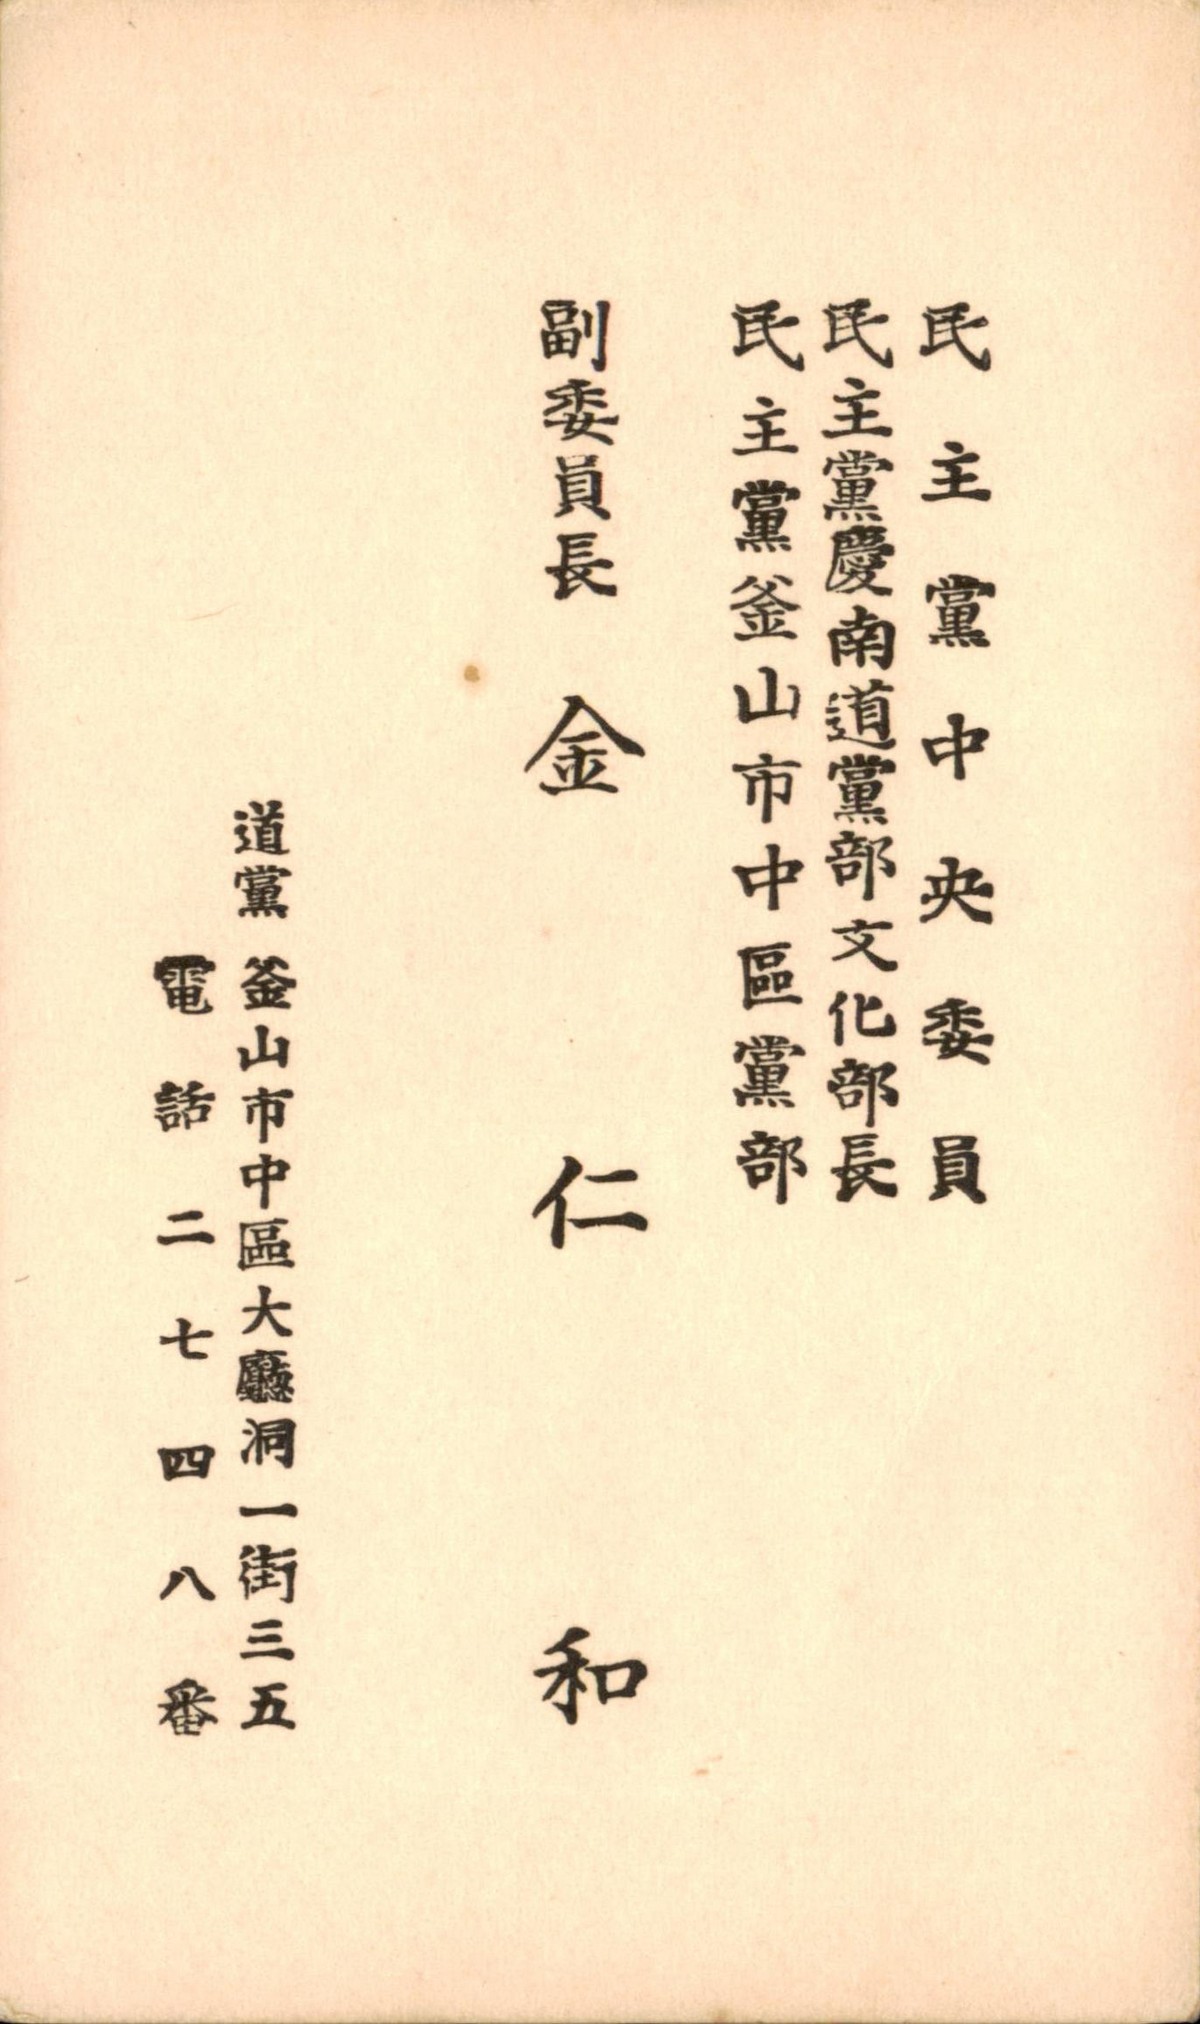 民主黨中央委員
民主黨慶南道黨部文化部長
民主黨釜山市中區黨部
副委員長 金仁和
道黨 釜山市中區大廳洞一街三五
電話二七四八番